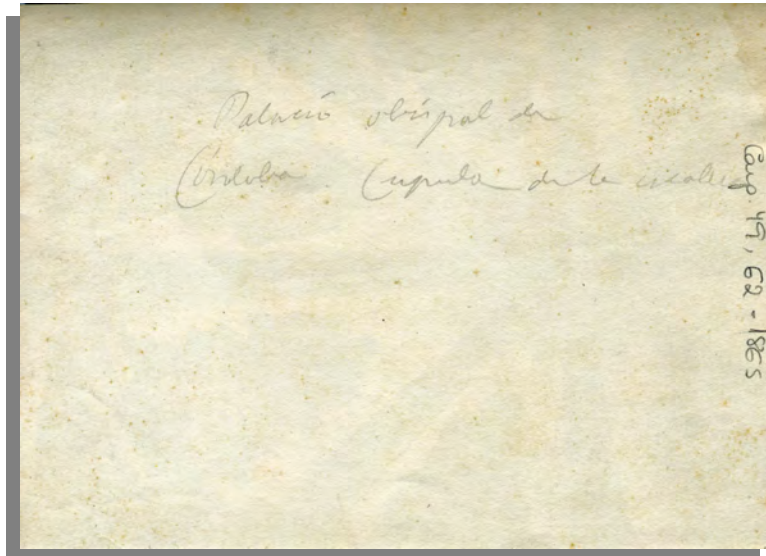 Palacio obispal de
Cordoba. Cupula de la escalera
Carp. 49, 62-1865